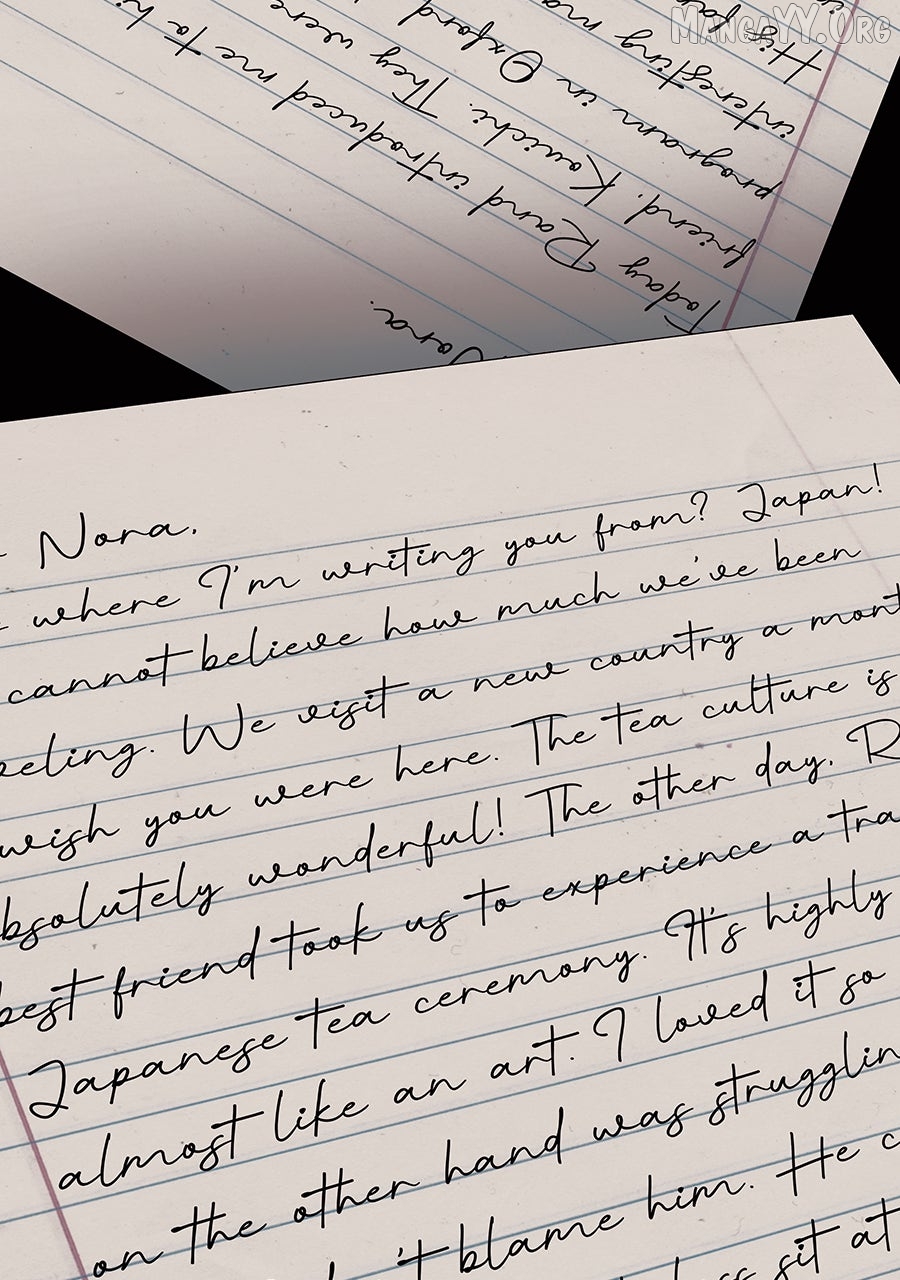 MANGAYY.ORG
Nora.
Today Rand introduced me to hi
friend. Kouichi. They were
program in Oxford
interesting ma
Nora.
where I'm writing you from? Japan!
cannot believe how much we've been
eling. We visit a new country a mont
wish you were here. The tea culture is
bsolutely wonderful! The other day. R
best friend took us to experience a tra
Japanese tea ceremony. It's highly
almost like an art. I loved it so
on the other hand was strugglin
't blame him. He c
sit at